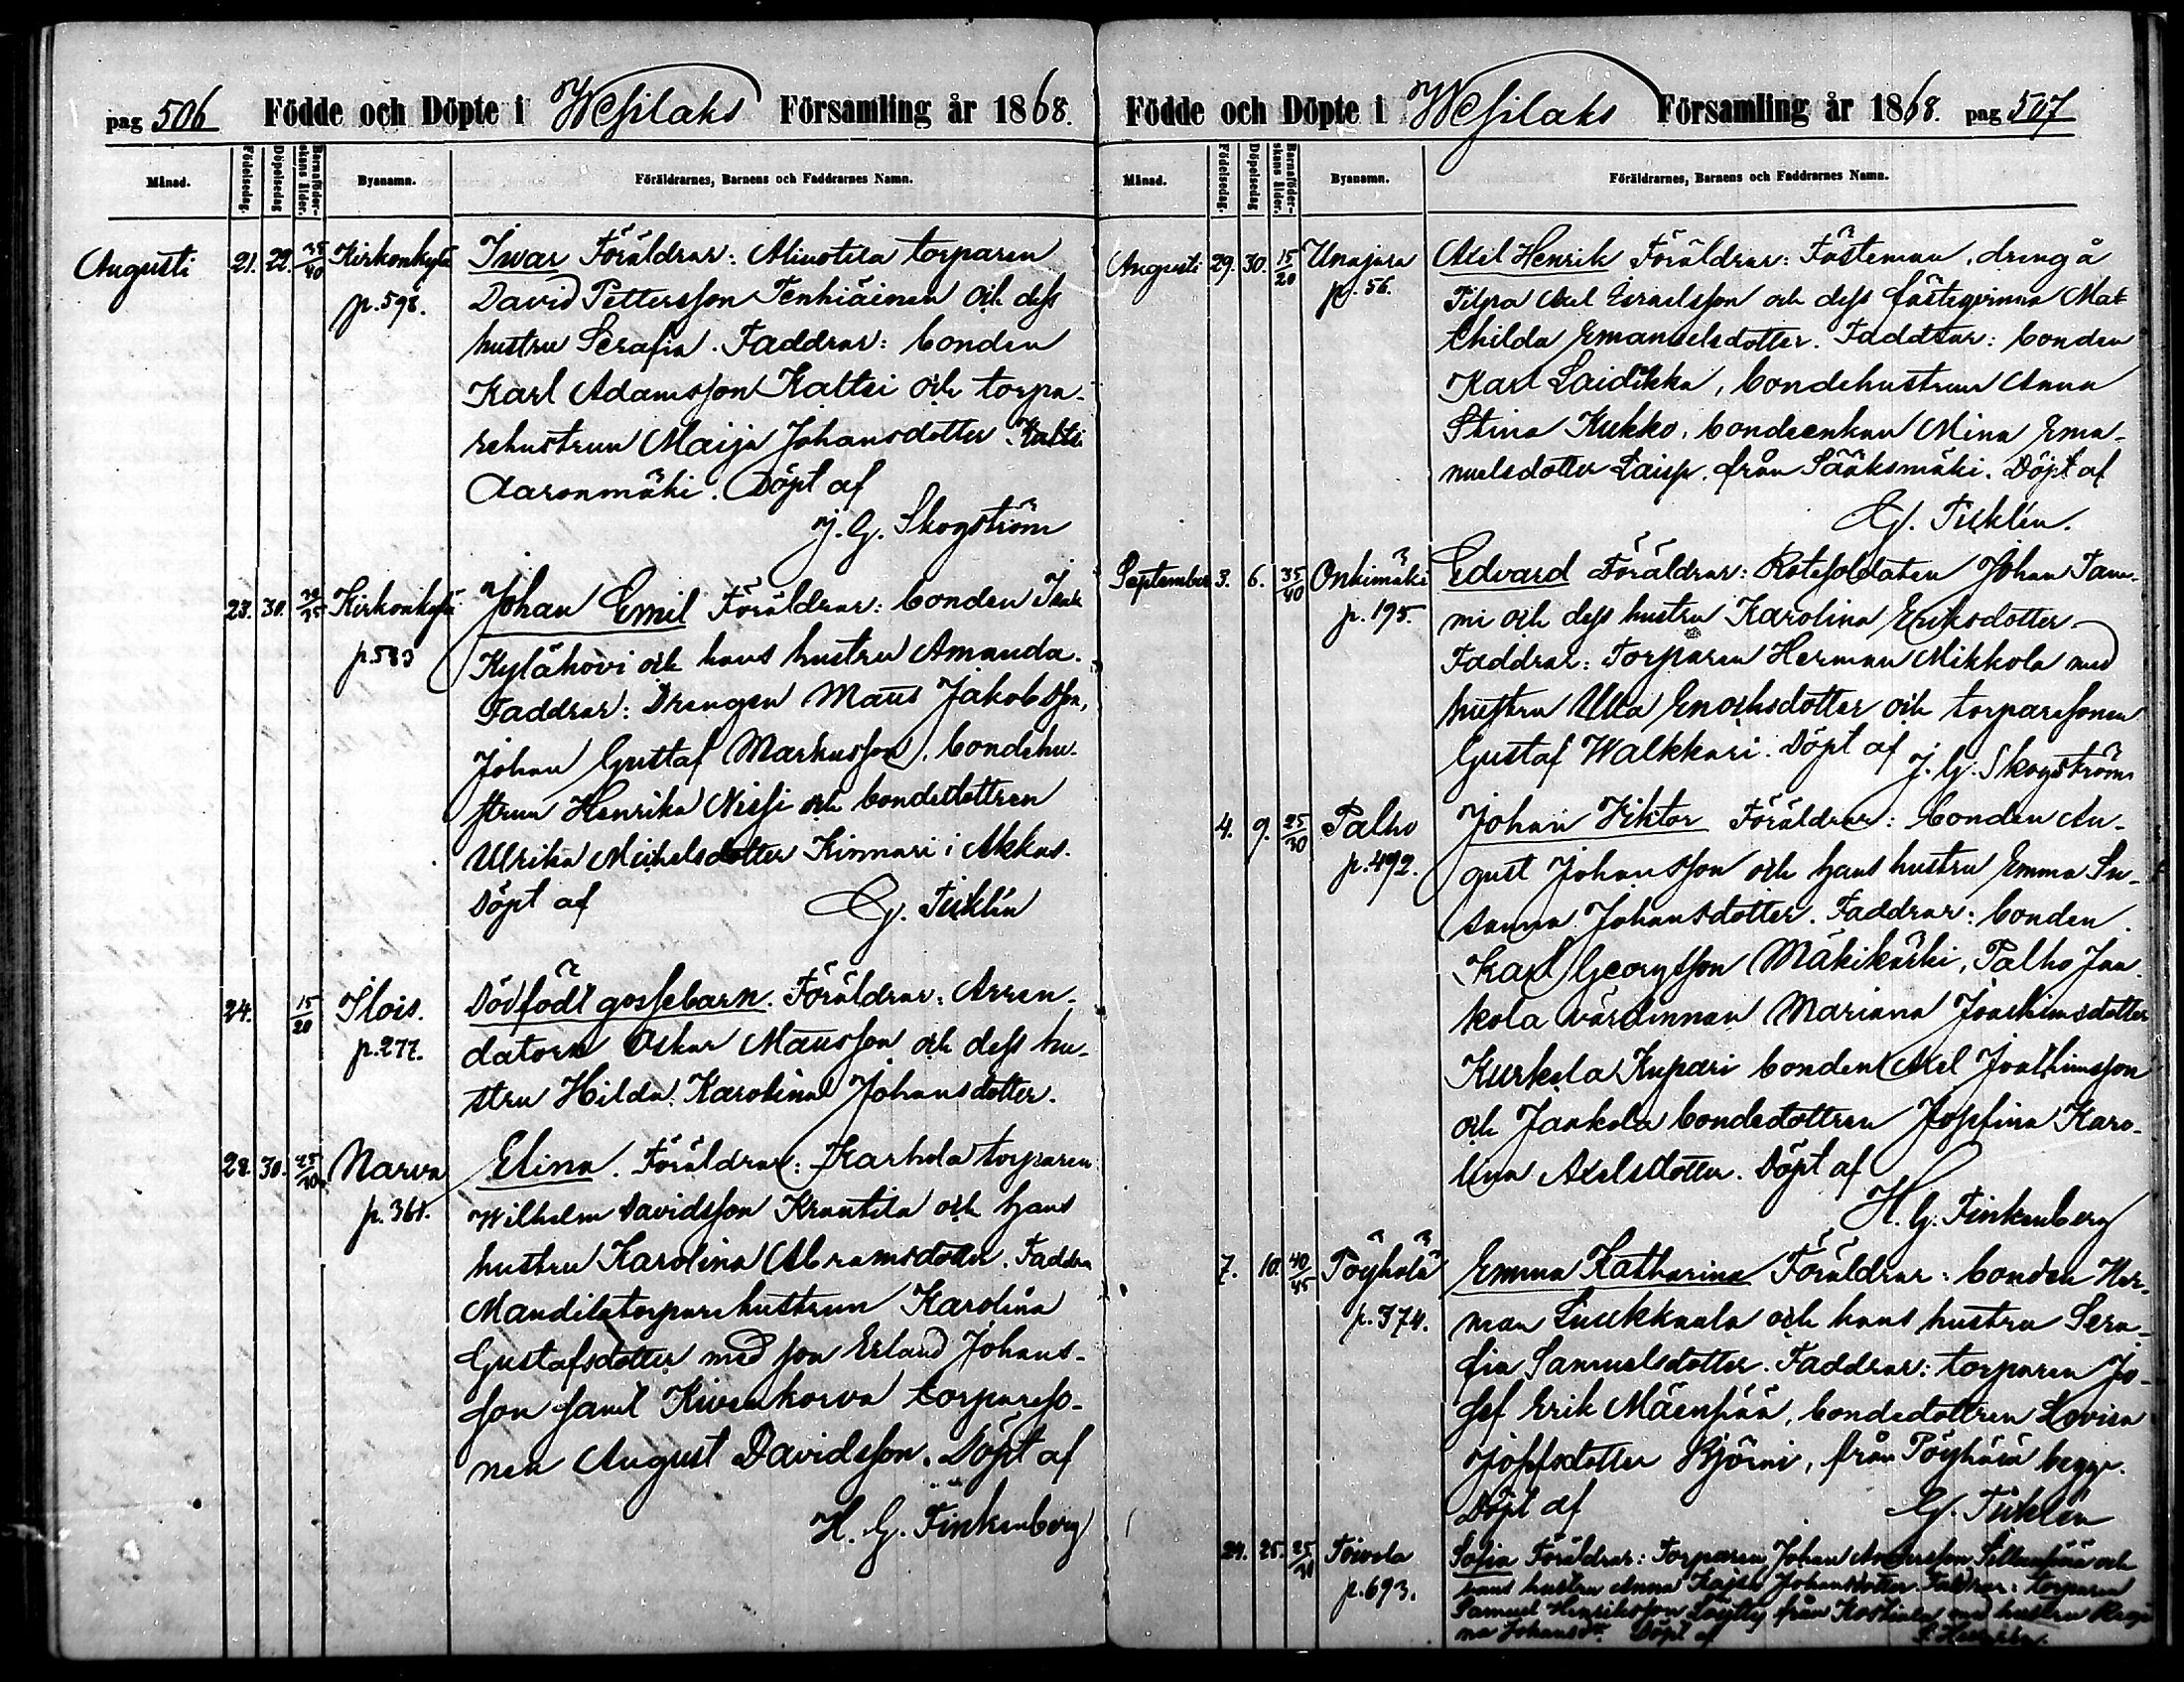 pag 506 Födde och Döpte i Wesilaks Församling år 1868.
Månad. Födelsedag. Döpelsedag Barnaföderskans ålder. Byanamn. Föräldrarnes, Barnens och Faddrarnes Namn.
Augusti 21. 22. 35/40 Kirkonkylä Iwar Föräldrar: Alinotila torparen
p. 598. David Pettersson Tenhiäinen och dess
hustru Serafia. Faddrar: bonden
Karl Adamsson Kaltsi och torpa-
rehustrun Maija Johansdotter Kaltsi
Aaronmäki. Döpt af
J. G. Skogström
23. 30. Kirkonkylä Johan Emil Föräldrar: bonden Isak
p. 583 Kylähovi och hans hustru Amanda.
Faddrar: Drengen Maus Jakobsson,
Johan Gustaf Markusson, bondehu-
strun Henrika Nissi och bondedottren
Ulrika Michelsdotter Kinnari i Akkas.
Döpt af G. Ticklén
24. 15/20 Ilois. Dödfödt gossebarn. Föräldrar: Arren-
p. 277. datorn Oskar Mausson och dess hu-
stru Hilda Karolina Johansdotter.
28. 30. 25/30 Narva Elina. Föräldrar: Karhola torparen
p. 361. Wilhelm Davidsson Krautila och hans
hustru Karolina Abramsdotter. Faddra
Mandila torparehustrun Karolina
Gustafsdotter med son Erland Johans-
son samt Kivenkorva torpareso-
nen August Davidsson. Döpt af
H. G. Finkenberg
Födde och Döpte i Wesilaks Församling år 1868. pag 507
Månad. Födelsedag. Döpelsedag Barnaföderskans ålder. Byanamn. Föräldrarnes, Barnens och Faddrarnes Namn.
Augusti 29. 30. 15/20 Unajara Axel Henrik Föräldrar: Fästeman, dräng å
p. 56. Tilpa Axel Israelsson och dess fästeqvinna Mat
thilda Emanuelsdotter. Faddrar: bonden
Karl Laidikka, bondehustrun Anna
Stina Kukko, bondeenkan Mina Ema-
nuelsdotter från Sääksmäki. Döpt af
G. Ticklén.
September 3. 6. 35/40 Onkimäki Edvard Föräldrar: Rotesoldaten Johan Tam-
p. 195. mi och dess hustru Karolina Eriksdotter.
Faddrar: Torparen Herman Mikkola med
hustru Ulla Enochsdotter och torparesonen
Gustaf Walkkari. Döpt af J. G. Skogström
4. 9. 25/30 Palho Johan Viktor Föräldrar: bonden Au-
p. 492. gust Johansson och hans hustru Emma Su-
sanna Johansdotter. Faddrar: bonden
Karl Georgsson Mäkikäski, Palho Jaa-
kola värdinnan Mariana Joachimsdotter
Kurkela Kupari bonden Axel Joachimsson
och Jaakola bondedottren Josefina Karo-
lina Axelsdotter. Döpt af
H. G. Finkenberg
7. 10. 40/45 Pöyhölä Emma Katharina Föräldrar: bonden Her-
p. 374. man Luukkaala och hans hustru Sera-
fia Samuelsdotter. Faddrar: torparen Jo-
sef Erik Mäenpää, bondedottren Lovisa
Josefsdotter Björni, från Pöyhölä begge.
Döpt af G. Ticklén
24. 25. 25/30 Toivola Sofia Föräldrar: Torparen Johan Andersson Sillanpää och
p. 693. hans hustru Anna Kajsa Johansdotter. Faddrar: torparen
Samuel Henriksson Löytty från Koskiala med hustru Regi
na Johansdr. Döpt af